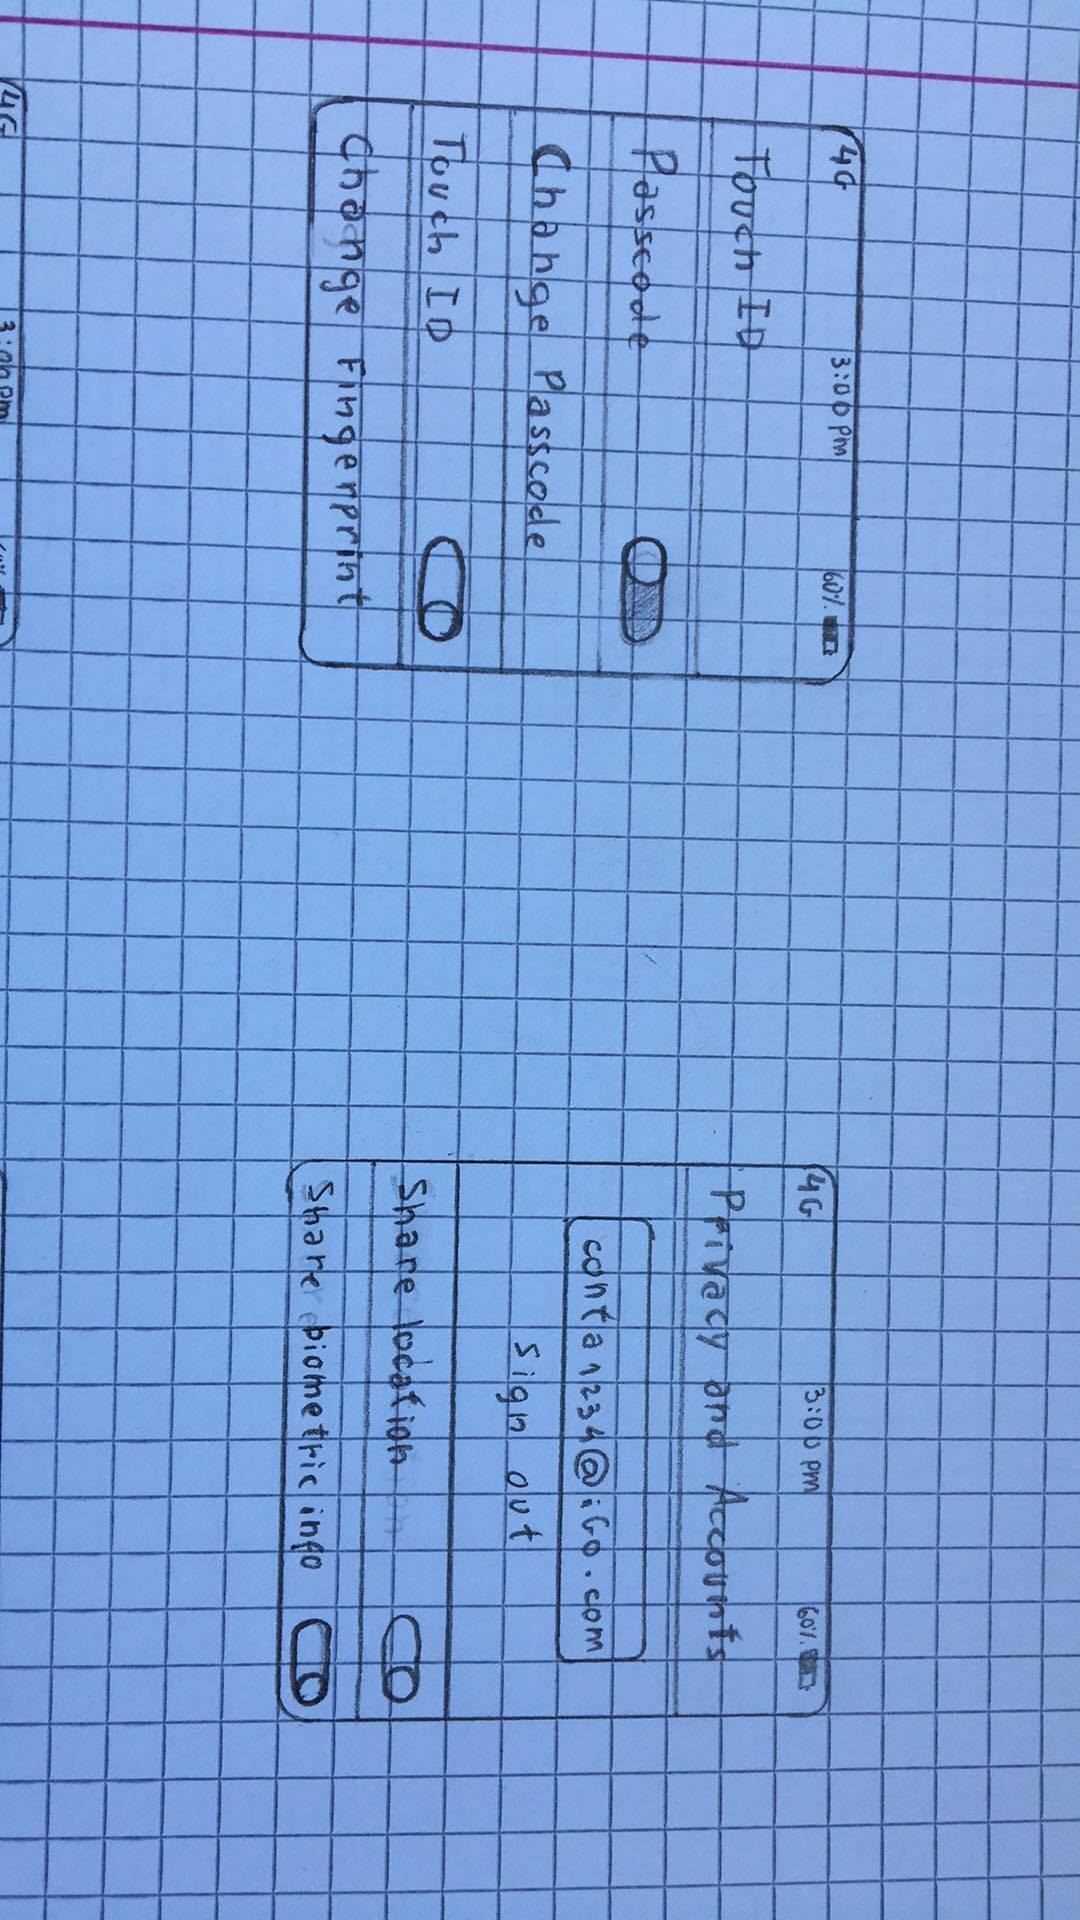 4G 3:00pm 60%
Touch ID
Passcode
Change Passcode
Touch ID
Change Fingerprint
4G 3:00pm 60%
Privacy and Accounts
conta1234@iGo.com
sign out
Share location
Share biometric info
4G 3:00pm